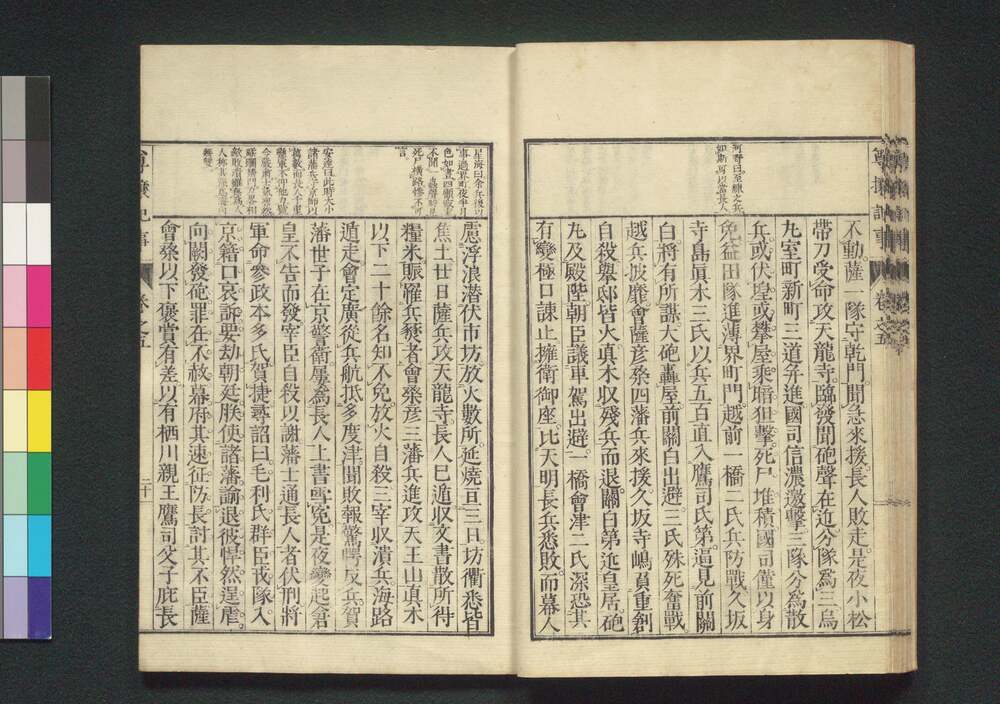 不動。薩一隊守乾門。聞急來援。長人敗走。是夜小松
帶刀受命攻天龍寺。臨發聞砲聲在近。分隊爲三。烏
九室町新町三道并進。國司信濃邀擊。三隊分爲散
兵。或伏堭或攀屋。乘暗狙擊。死尸堆積。國司僅以身
免。益田隊進薄界町門。越前一橋二氏兵防戰。久坂
寺島眞木三氏以兵五百直入鷹司氏第。逼見前關
白。將有所謀。大砲轟屋。前關白出避。三氏殊死奮戰。
越兵披靡。會薩彥桑四藩兵來援。久坂寺嶋負重創
自殺。擧邸皆火。眞木収殘兵而退。關白第近皇居。砲
丸及殿陛。朝臣議車駕出避。一橋會津二氏深恐其
有變。極口諫止。擁衛御座。比天明長兵悉敗。而幕人
慮浮浪潜伏市坊。放火數所。延燒亘三日。坊衢悉皆
焦土。廿日薩兵攻天龍寺。長人已遁。収文書散所得
糧米賑罹兵燹者。會桑彥三藩兵進攻天王山。眞木
以下二十餘名知不免。放火自殺。三宰収潰兵。海路
遁走。會定廣從兵航抵多度津。聞敗報驚愕反兵。賀
藩世子在京警衛。屢爲長人上書雪寃。是夜變起。倉
皇不告而發。宰臣自殺以謝。藩士通長人者伏刑。將
軍命參政本多氏賀捷。尋詔曰。毛利氏群臣戎隊入
京。籍口哀訴。要劫朝廷。朕使諸藩諭退。彼悍然逞虐。
向闕發砲。罪在不赦。幕府其速征防長。討其不臣。薩
會桑以下褒賞有差。以有栖川親王鷹司父子庇長
卷之五
二十